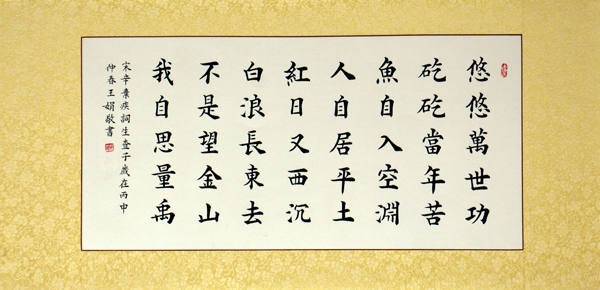 悠悠萬世功
矻矻當年苦
魚自入空淵
人自居平土
紅日又西沉
白浪長東去
不是望金山
我自思量禹
宋辛棄疾詞生查子歲在丙申
仲春王娟敬書